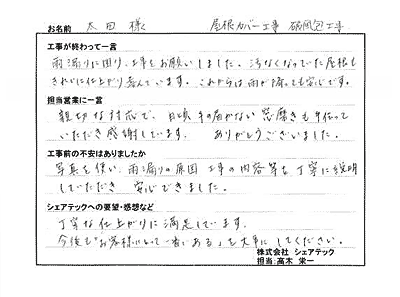 お名前 太田 様 屋根カバー工事 破風包工事
工事が終わって一言
雨漏りに困り、工事をお願いしました。汚なくなっていた屋根も
きれいに仕上がり喜んでいます。これからは雨が降っても安心です。
担当営業に一言
親切な対応で、日頃手の届かない窓磨きも手伝って
いただき感謝しています。 ありがとうございました。
工事前の不安はありましたか
写真を使い、雨漏りの原因 工事の内容等を丁寧に説明
していただき 安心できました。
シェアテックへの要望・感想など
丁寧な仕上がりに満足しています。
今後も"お客様にとって一番である"を大事にしてください。
株式会社 シェアテック
担当:高木 栄一